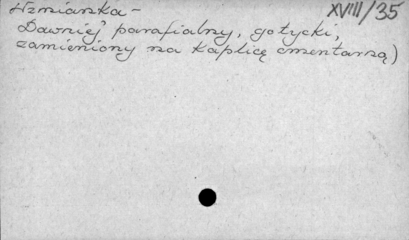 Wzmianka - XVIII/35
Dawniej parafialny, gotycki,
zamieniony na kaplicę cmentarną)